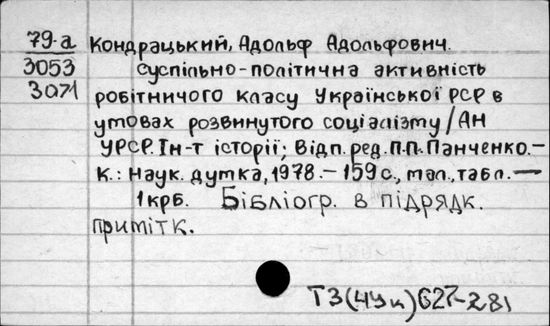 79-а Кондрацький, Адольф Адольфович.
3053 Суспільно-політична активність
3071 робітничого класу Української РСР в
умовах розвинутого соціалізму / АН
УРСР. Ін-т історії; Відп. ред. П.П. Панченко.-
К.: Наук. думка, 1978. - 159 с., мал., табл. -
1 крб. Бібліогр. в підрядк.
приміт к.
Т3(4Ук)627-281